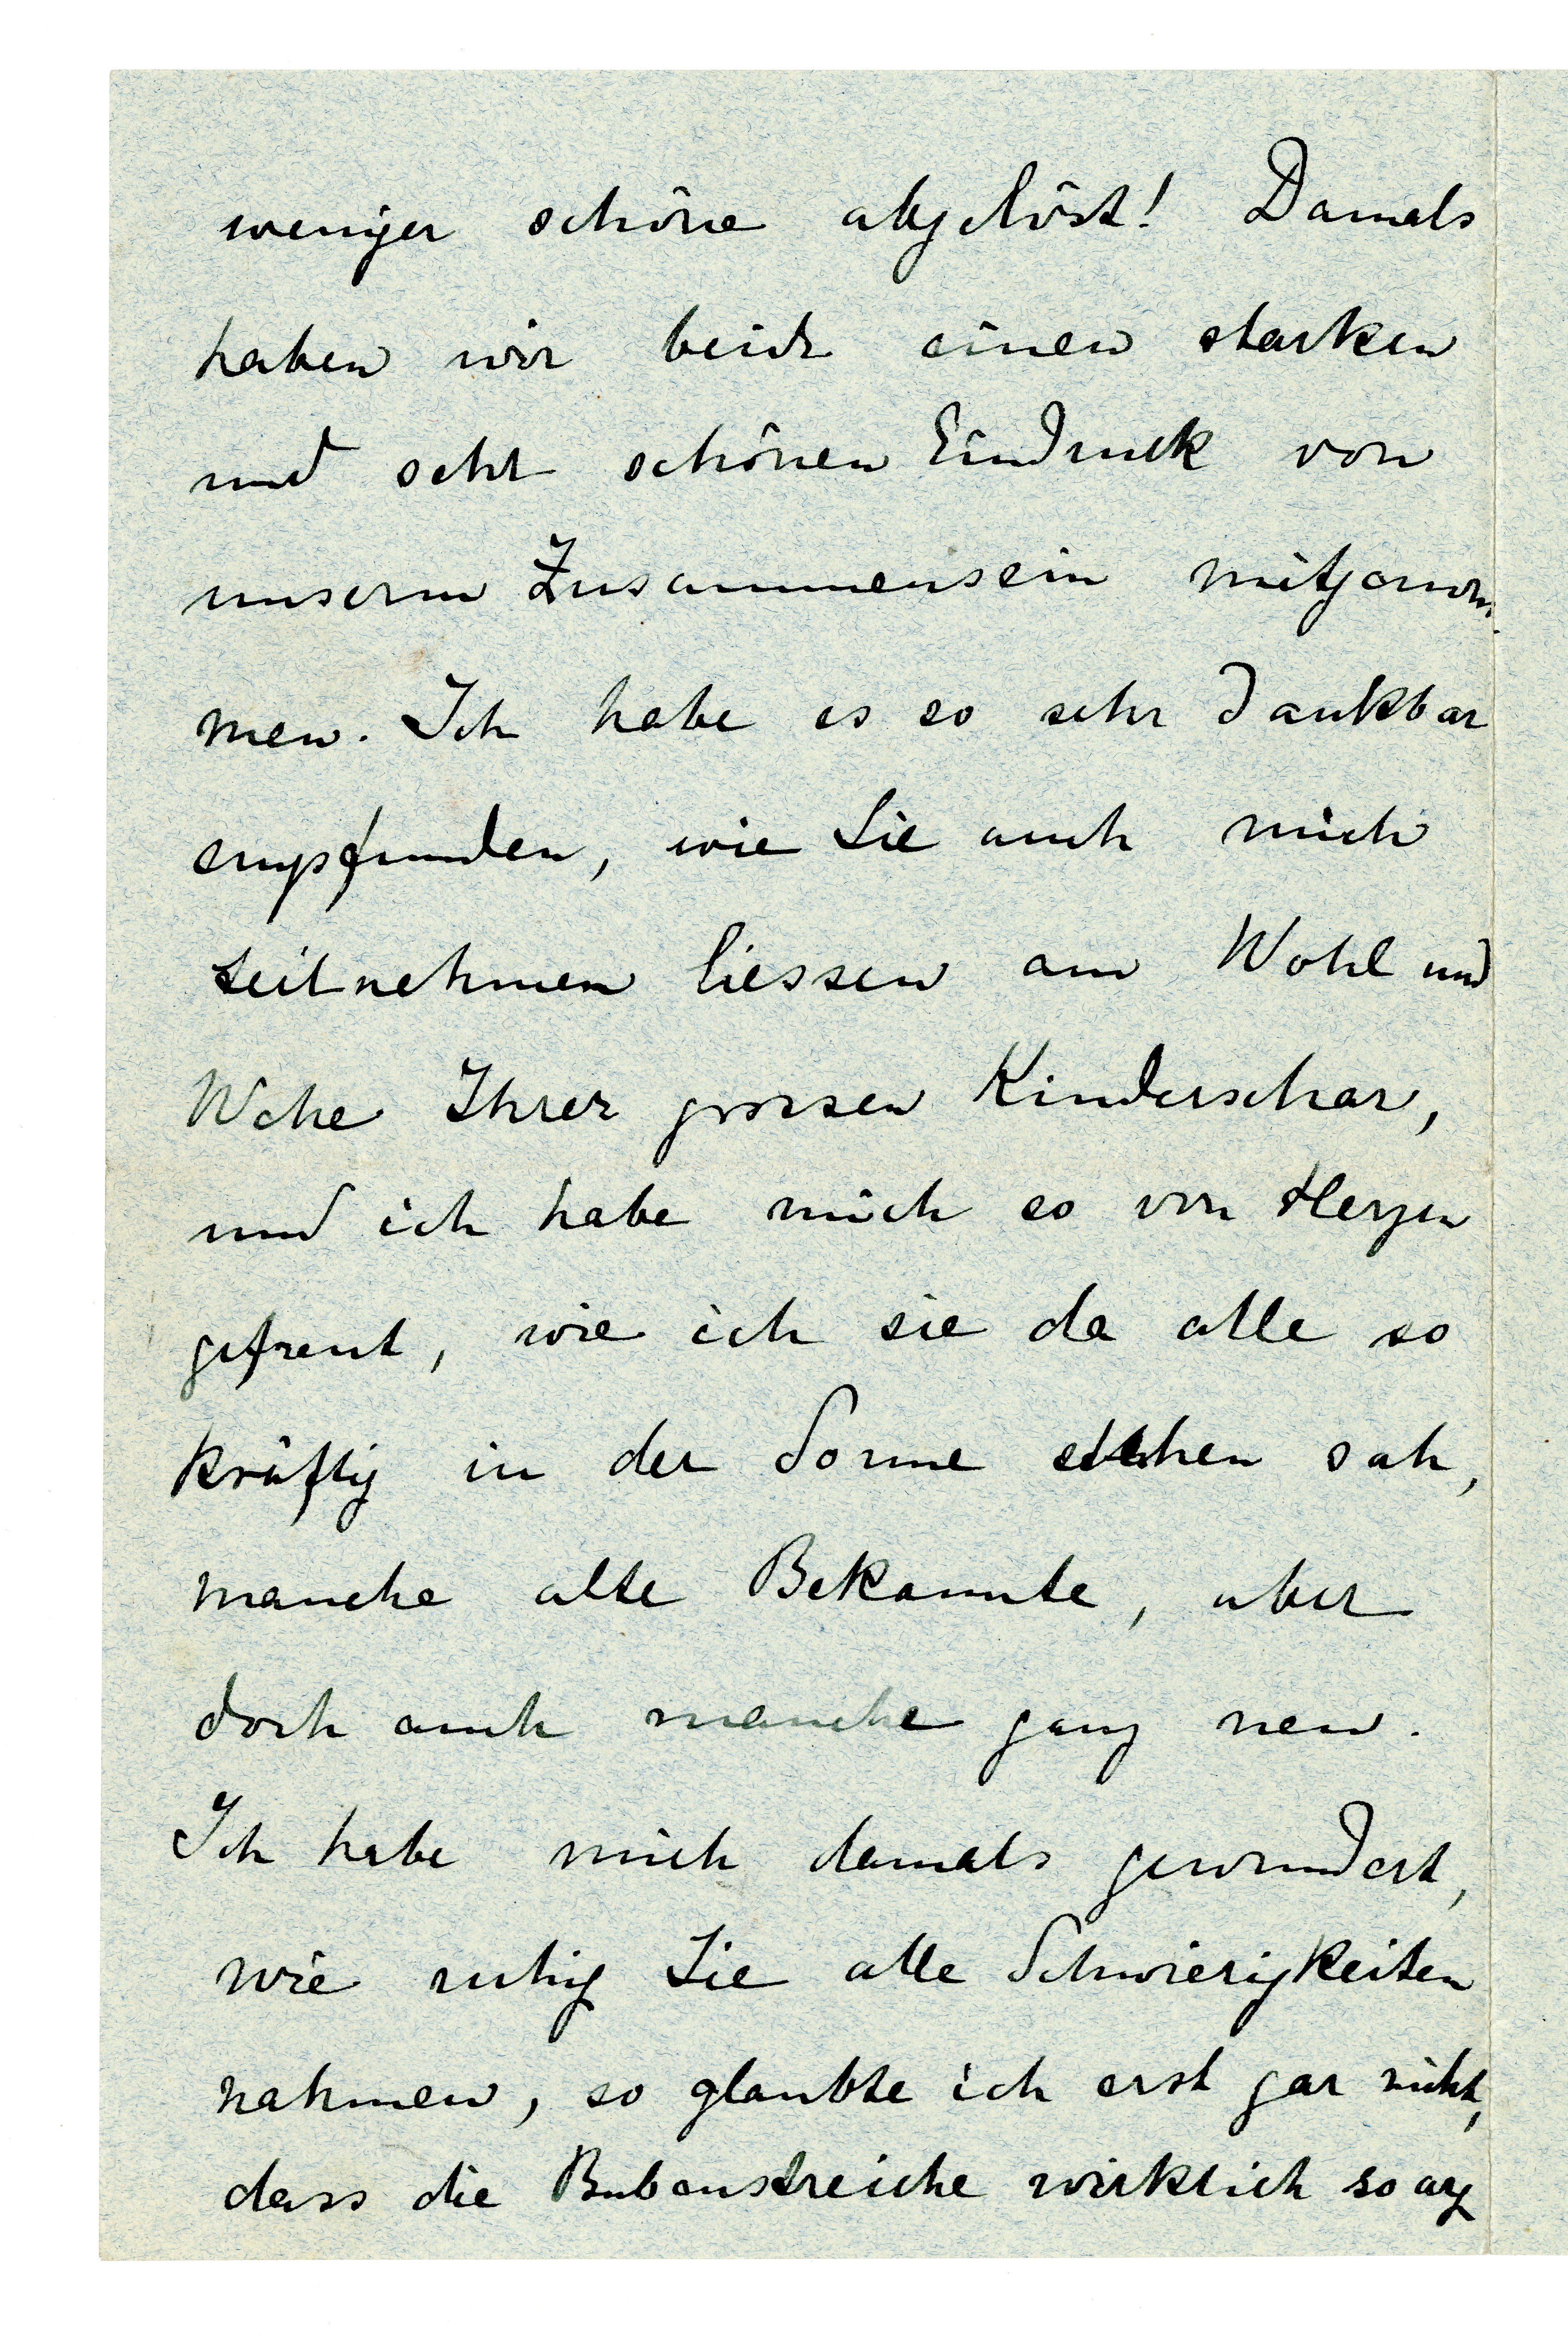 weniger schöne abgelöst! Damals
haben wir beide einen starken
und sehr schönen Eindruck von
unserm Zusammensein mitgenom-
men. Ich habe es so sehr dankbar
empfunden, wie Sie auch mich
teilnehmen liessen am Wohl und
Wehe Ihrer grossen Kinderschar,
und ich habe mich so von Herzen
gefreut, wie ich sie da alle so
kräftig in der Sonne stehen sah,
manche alte Bekannte, aber
doch auch manche ganz neu.
Ich habe mich damals gewundert,
wie ruhig Sie alle Schwierigkeiten
nahmen, so glaubte ich erst gar nicht,
dass die Bubenstreiche wirklich so arg